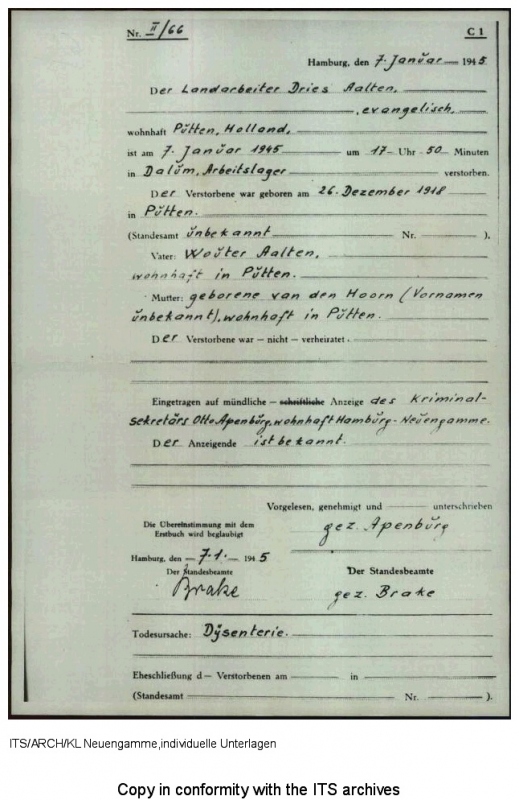 Nr. II/66 C 1
Hamburg, den 7. Januar 1945
Der Landarbeiter Dries Aalten,
, evangelisch,
wohnhaft Pŭtten, Holland,
ist am 7. Janŭar 1945 um 17 Uhr 50 Minuten
in Dalŭm, Arbeitslager verstorben.
Der Verstorbene war geboren am 26. Dezember 1918
in Pŭtten.
(Standesamt ŭnbekannt Nr. ).
Vater: Woŭter Aalten,
wohnhaft in Pŭtten.
Mutter: geborene van den Hoorn (Vornamen
ŭnbekannt), wohnhaft in Pŭtten.
Der Verstorbene war – nicht – verheiratet.
Eingetragen auf mündliche – schriftliche Anzeige des Kriminal-
sekretärs Otto Apenbŭrg, wohnhaft Hambŭrg-Neŭengamme.
Der Anzeigende ist bekannt.
Vorgelesen, genehmigt und unterschrieben
Die Übereinstimmung mit dem
Erstbuch wird beglaubigt
gez. Apenbŭrg
Hamburg, den 7.1. 1945
Der Standesbeamte Der Standesbeamte
Brake gez. Brake
Todesursache: Dÿsenterie.
Eheschließung d– Verstorbenen am in
(Standesamt Nr. ).
ITS/ARCH/KL Neuengamme,individuelle Unterlagen
Copy in conformity with the ITS archives